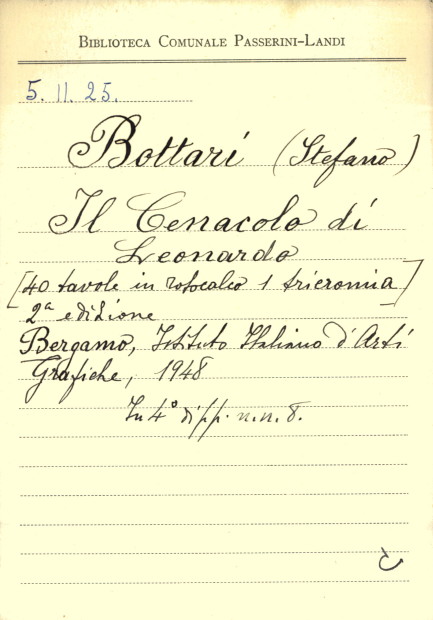 BIBLIOTECA COMUNALE PASSERINI-LANDI
5. 11. 25.
Bottari (Stefano)
Il Cenacolo di
Leonardo
[40 tavole in rotocalco 1 tricromia]
2ª edizione
Bergamo, Istituto Italiano d'Arti
Grafiche, 1948
In 4° di pp. n.n. 8.